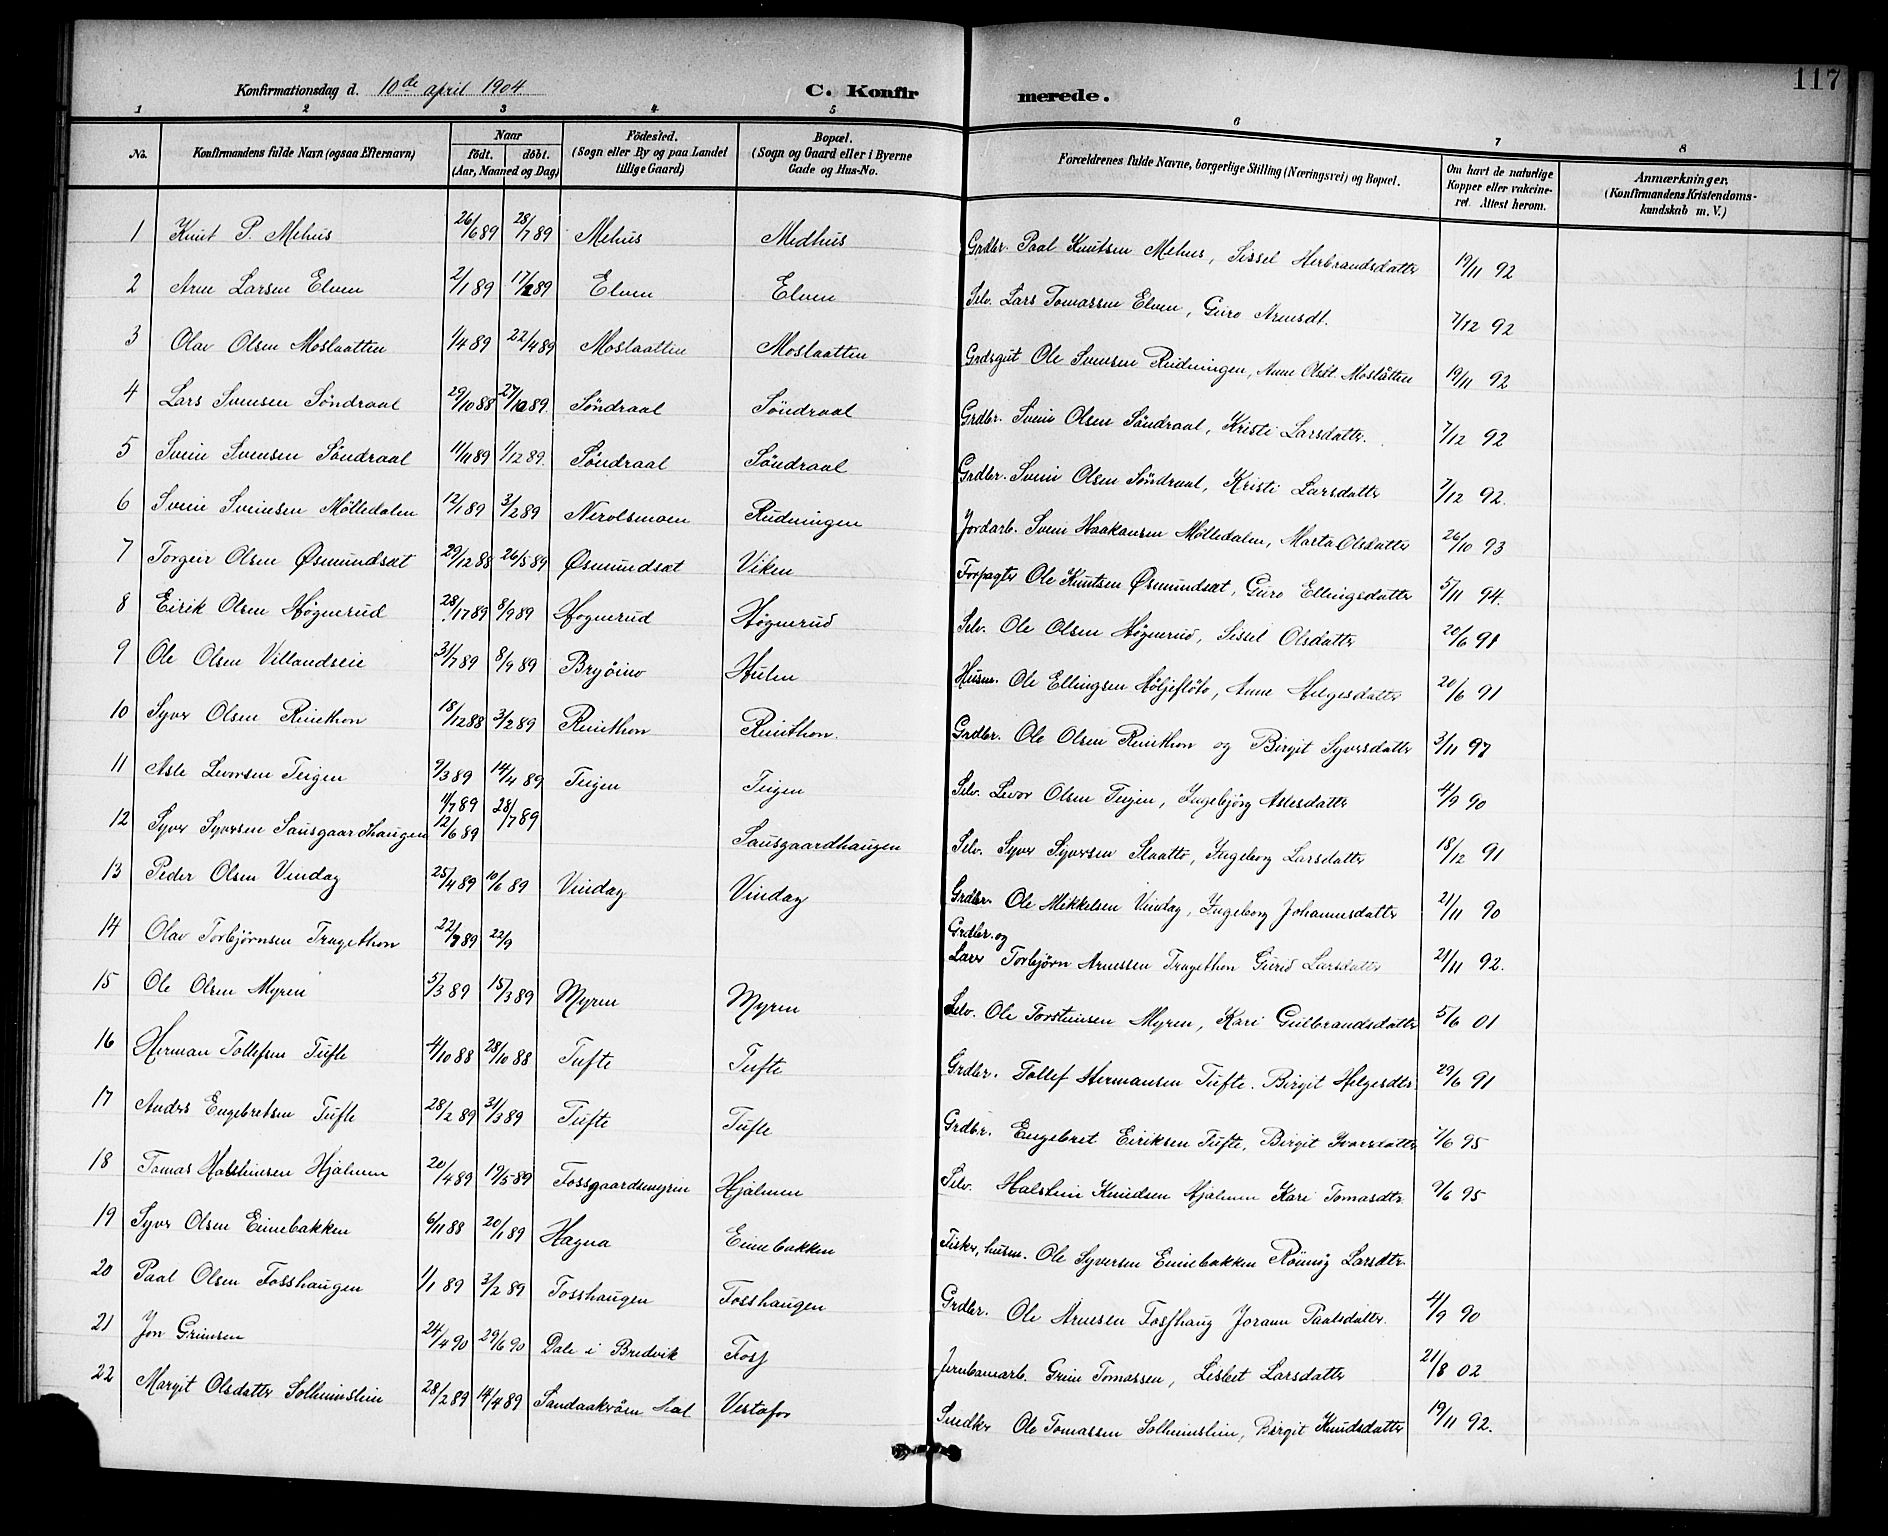 117
Konfirmationsdag d. 10de april 1904. C. Konfirmerede.
1 2 3 4 5 6 7 8
No. Konfirmandens fulde Navn (ogsaa Efternavn) Naar födt. döbt. (Aar, Maaned og Dag) Födested. (Sogn eller By og paa Landet tillige Gaard) Bopæl. (Sogn og Gaard eller i Byerne Gade og Hus-No. Forældrenes fulde Navne, borgerlige Stilling (Næringsvei) og Bopæl. Om havt de naturlige Kopper eller vakcineret. Attest herom. Anmærkninger. (Konfirmandens Kristendomskundskab m. V.)
1 Knut P. Mehus 26/6 89 28/7 89 Mehus Medhus Grdbr. Paal Knutsen Mehus, Sissel Herbrandsdatter 19/11 92
2 Arne Larsen Elven 2/1 89 17/2 89 Elven Elven Selv. Lars Tomassen Elven, Guro Arnesdt. 7/12 92
3 Olav Olsen Moslaatten 1/4 89 22/4 89 Moslaatten Moslaatten Grdsgut Ole Svensen Rudningen, Anne Olsdt. Moslåtten 19/11 92
4 Lars Svensen Söndraal 29/10 88 Söndraal Söndraal Grdbr. Svein Olsen Söndraal, Kristi Larsdatter. 7/12 92
5 Svein Svensen Söndraal 11/11 89 1/12 89. Söndraal Söndraal Grdbr. Svein Olsen Söndraal, Kristi Larsdatter 7/12 92.
6 Svein Sveinsen Mölledalen 12/1 89 3/2 89 Nerolsmoen Rudningen Jordarb. Svein Haakansen Mölledalen, Marta Olsdatter 26/10 93
7 Torgeir Olsen Øsmundsæt 29/12 88 26/5 89 Øsmundsæt Viken Forpagter Ole Knutsen Øsmundsæt, Guro Ellingsdatter 5/11 94.
8 Eirik Olsen Høgnerud 28/7 89 8/9 89 Høgnerud Høgnerud Selv. Ole Olsen Høgnerud, Sissel Olsdatter 20/6 91
9 Ole Olsen Villandseie 31/7 89 8/9 89 Hulen Husm. Ole Ellingsen Höljeflöto, Anne Helgesdatter 20/6 91
10 Syver Olsen Reinthon 18/12 88 3/2 89 Reinthon Reinthon. Grdbr. Ole Olsen Reinthon og Birgit Syversdatter 3/11 97
11 Asle Levorsen Teigen 9/3 89 14/4 89 Teigen Teigen Selv. Levor Olsen Teigen, Ingebjörg Aslesdatter 4/9 90
12 Syver Syversen Sausgaardhaugen 11/7 89 12/6 89 28/7 89 Sausgaardhaugen Selv. Syver Syversen Slaatto, Ingeborg Larsdatter 18/12 91
13 Peder Olsen Vindag 25/4 89 10/6 89 Vindag Vindag Grdbr. Ole Mikkelsen Vindag, Ingeborg Johannesdatter 21/11 90
14 Olav Torbjörnsen Tragethon 22/7 89 22/9 Grdbr. og Lærer Torbjörn Arnessen Tragethon Gurid Larsdatter 21/11 92.
15 Ole Olsen Myren 5/3 89 15/3 89 Myren Myren Selv. Ole Torsteinsen Myren, Kari Gulbrandsdatter 5/6 01
16 Herman Tollefsen Tufte 4/10 88 28/10 88 Tufte Tufte Grdbr. Tollef Hermansen Tufte. Birgit Helgesdtr 29/6 91
17 Anders Engebretsen Tufte 28/2 89 31/3 89 Tufte Tufte Grdbr. Engebret Eiriksen Tufte, Birgit Iversdatter 7/6 95
18 Tomas Halsteinsen Hjälmen 20/4 89 19/5 89 Fossgaardsmyrin Hjälmen Selv. Halstein Knudsen Hjälmen Kari Tomasdtr 9/6 95
19 Syver Olsen Einebakken 6/11 88 20/1 89 Hagna Einebakken Fisker, husm. Ole Syversen Einebakken Rönnög Larsdtr.
20 Paal Olsen Fosshaugen 1/1 89 3/2 89 Fosshaugen Fosshaugen Grdbr. Ole Arnesen Fosshaug Jorann Paalsdatter. 4/9 90
21 Jon Grimsen 24/4 90 29/6 90 Dale i Bredvik Foss Jernbanearb. Grim Tomassen, Lisbet Larsdatter 21/8 02
22 Margit Olsdatter Solheimslien 28/2 89 14/4 89 Vestafor Snedker Ole Tomassen Solheimslien, Birgit Knudsdatter 19/11 92.